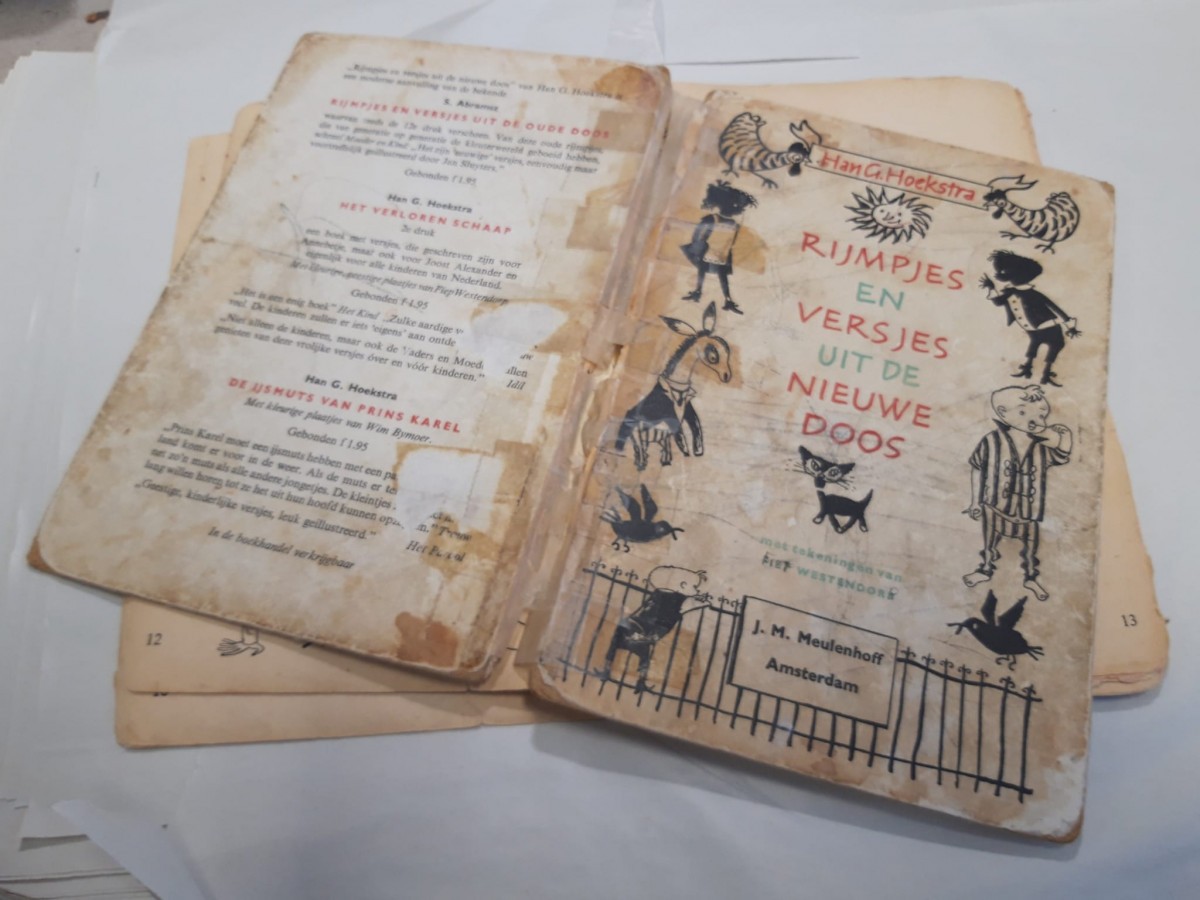 „Rijmpjes en versjes uit de nieuwe doos" van Han G. Hoekstra is
een moderne aanvulling van de bekende
S. Abramsz
RIJMPJES EN VERSJES UIT DE OUDE DOOS
waarvan reeds de 12e druk verscheen. Van deze oude rijmpjes,
die van generatie op generatie de kleuterwereld geboeid hebben,
schreef Moeder en Kind: „Het zijn 'eeuwige' versjes, eenvoudig maar
voortreffelijk geïllustreerd door Jan Sluyters."
Gebonden f 1.95
Han G. Hoekstra
HET VERLOREN SCHAAP
2e druk
een boek met versjes, die geschreven zijn voor
Annebetje, maar ook voor Joost Alexander en
eigenlijk voor alle kinderen van Nederland.
Met kleurige, geestige plaatjes van Fiep Westendorp
Gebonden f 4.95
„Het is een enig boek" Het Kind „Zulke aardige v
veel. De kinderen zullen er iets 'eigens' aan ontde
„Niet alleen de kinderen, maar ook de Vaders en Moed llen
genieten van deze vrolijke versjes óver en vóór kinderen." Idil
Han G. Hoekstra
DE IJSMUTS VAN PRINS KAREL
Met kleurige plaatjes van Wim Bijmoer.
Gebonden f 1.95
„Prins Karel moet een ijsmuts hebben met een pa
land komt er voor in de weer. Als de muts er te
net zo'n muts als alle andere jongetjes. De kleintjes
lang willen horen tot ze het uit hun hoofd kunnen opz m."
„Geestige, kinderlijke versjes, leuk geïllustreerd." Het
In de boekhandel verkrijgbaar
12
Han G. Hoekstra
RIJMPJES
EN
VERSJES
UIT DE
NIEUWE
DOOS
met tekeningen van
FIEP WESTENDORP
J. M. Meulenhoff
Amsterdam
13